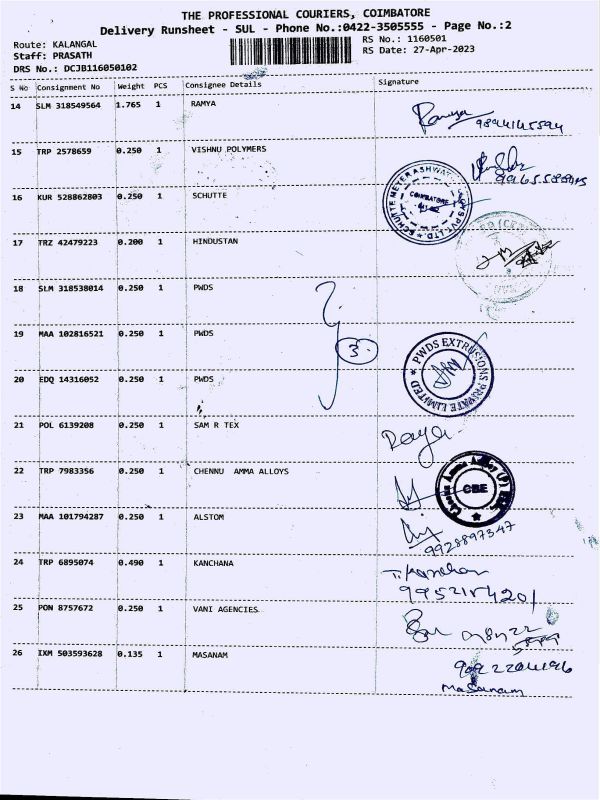 THE PROFESSIONAL COURIERS, COIMBATORE
Delivery Runsheet - SUL - Phone No.:0422-3505555 - Page No.:2
Route: KALANGAL
RS No.: 1160501
Staff: PRASATH
RS Date: 27-Apr-2023
DRS No.: DCJB116050102
S No Consignment No Weight PCS Consignee Details Signature
14 SLM 318549564 1.765 1 RAMYA
Ramya
15 TRP 2578659 0.250 1 VISHNU POLYMERS
16 KUR 528862803 0.250 1 SCHUTTE
COIMBATORE
17 TRZ 42479223 0.200 1 HINDUSTAN
18 SLM 318538014 0.250 1 PWDS
19 MAA 102816521 0.250 1 PWDS
3
PWDS EXTRUSIONS PRIVATE LIMITED
20 EDQ 14316052 0.250 1 PWDS
21 POL 6139208 0.250 1 SAM R TEX
Raya
22 TRP 7983356 0.250 1 CHENNU AMMA ALLOYS
CBE
23 MAA 101794287 0.250 1 ALSTOM
9928897347
24 TRP 6895074 0.490 1 KANCHANA
9952154201
25 PON 8757672 0.250 1 VANI AGENCIES
26 IXM 503593628 0.135 1 MASANAM
Masanam